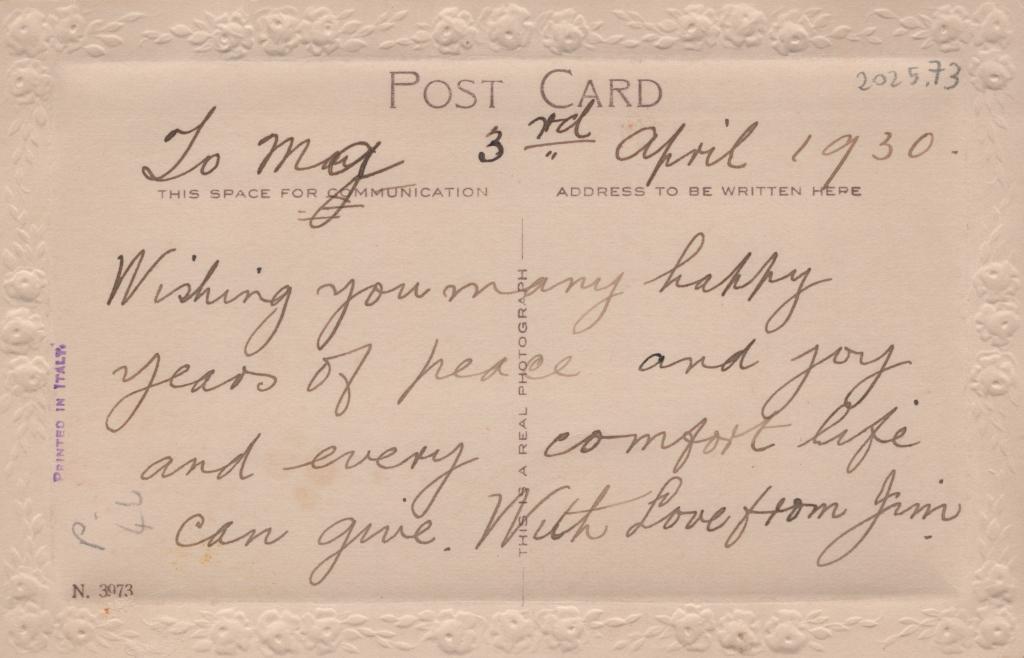 POST CARD
2025.73
To May 3rd April 1930.
THIS SPACE FOR COMMUNICATION
ADDRESS TO BE WRITTEN HERE
Wishing you many happy
years of peace and joy
and every comfort life
can give. With Love from Jim
THIS IS A REAL PHOTOGRAPH
PRINTED IN ITALY.
N. 3973